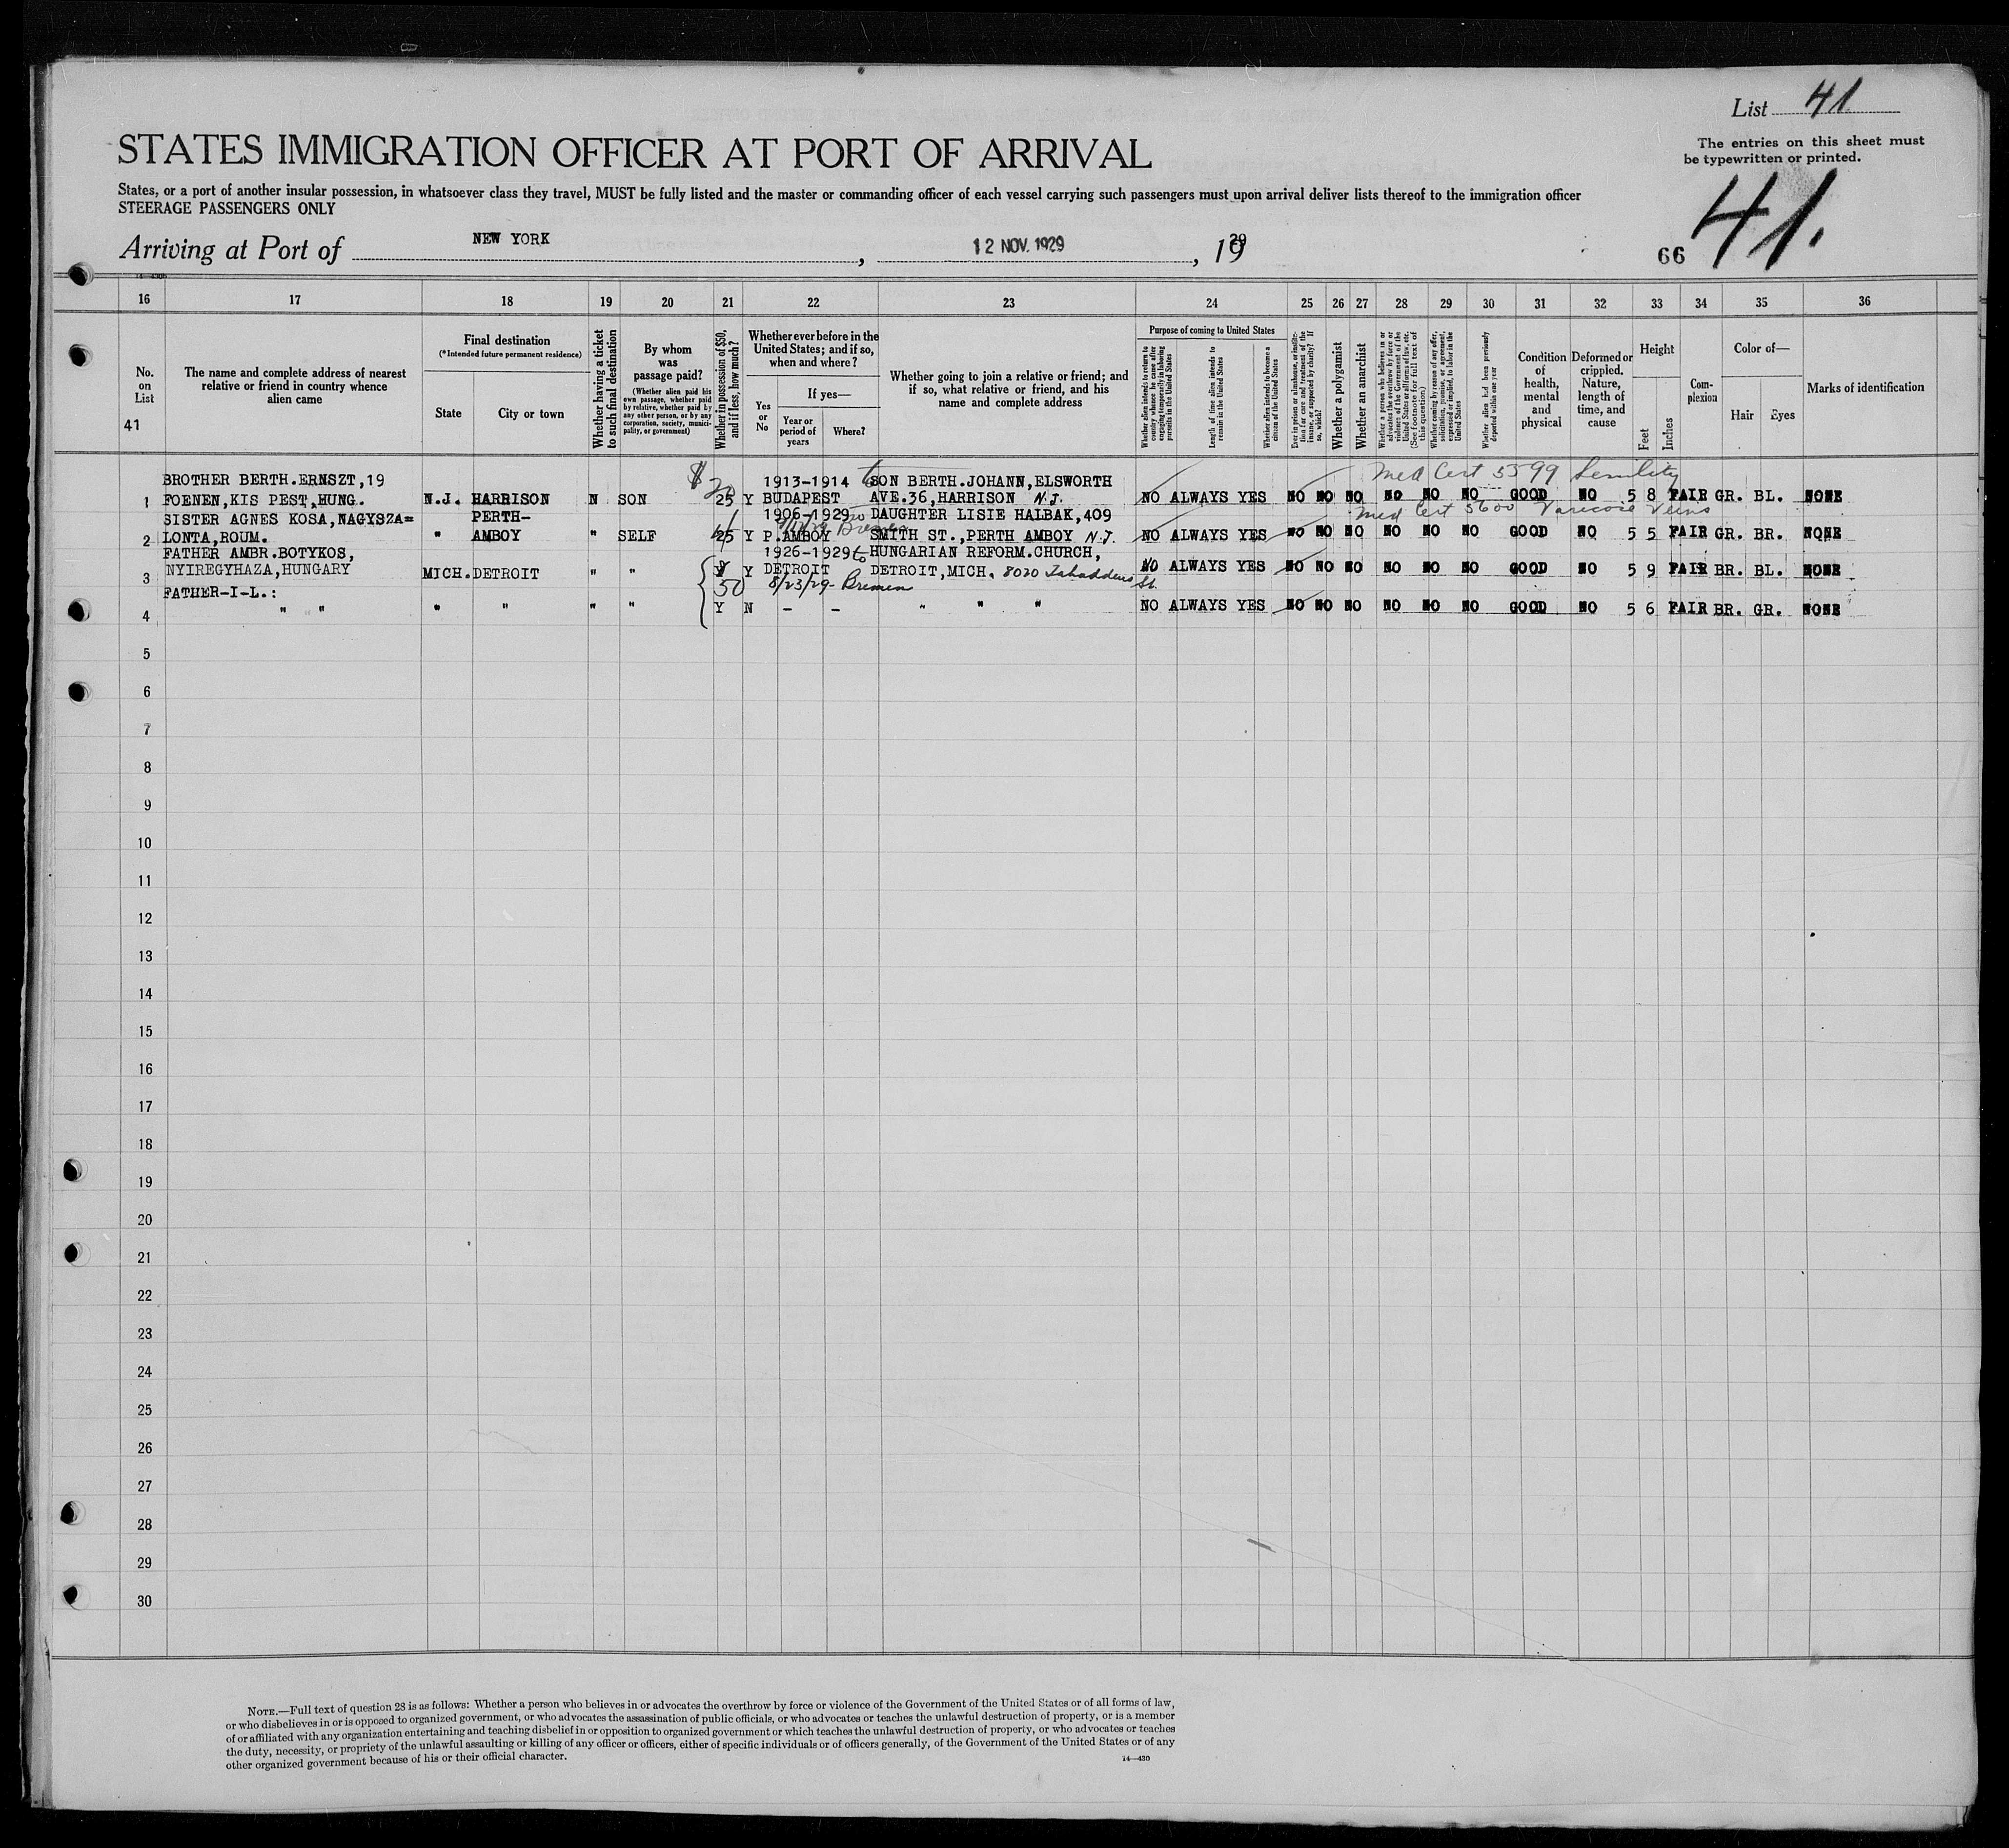 List 41
STATES IMMIGRATION OFFICER AT PORT OF ARRIVAL
The entries on this sheet must
be typewritten or printed.
States, or a port of another insular possession, in whatsoever class they travel, MUST be fully listed and the master or commanding officer of each vessel carrying such passengers must upon arrival deliver lists thereof to the immigration officer
STEERAGE PASSENGERS ONLY
41.
Arriving at Port of NEW YORK, 12 NOV. 1929, 1929
66
16 17 18 19 20 21 22 23 24 25 26 27 28 29 30 31 32 33 34 35 36
No. on List
41
The name and complete address of nearest relative or friend in country whence alien came
Final destination
(*Intended future permanent residence)
State
City or town
Whether having a ticket to such final destination
By whom was passage paid?
(Whether alien paid his own passage, whether paid by relative, whether paid by any other person, or by any corporation, society, municipality, or government)
Whether in possession of $50, and if less, how much?
Whether ever before in the United States; and if so, when and where?
Yes or No
If yes—
Year or period of years
Where?
Whether going to join a relative or friend; and if so, what relative or friend, and his name and complete address
Purpose of coming to United States
Whether alien intends to return to country whence he came after engaging temporarily in laboring pursuits in the United States
Length of time alien intends to remain in the United States
Whether alien intends to become a citizen of the United States
Ever in prison or almshouse, or institution for care and treatment of the insane, or supported by charity? If so, which?
Whether a polygamist
Whether an anarchist
Whether a person who believes in or advocates the overthrow by force or violence of the Government of the United States or all forms of law, etc. (See footnote for full text of this question)
Whether coming by reason of any offer, solicitation, promise, or agreement, expressed or implied, to labor in the United States
Whether alien had been previously deported within one year
Condition of health, mental and physical
Deformed or crippled. Nature, length of time, and cause
Height
Feet
Inches
Complexion
Color of—
Hair
Eyes
Marks of identification
Med Cert 5599 Senility
BROTHER BERTH.ERNSZT,19 $20 1913-1914 to SON BERTH.JOHANN,ELSWORTH
1 FOENEN,KIS PEST,HUNG. N.J. HARRISON N SON 25 Y BUDAPEST AVE.36,HARRISON N.J. NO ALWAYS YES NO NO NO NO NO NO GOOD NO 5 8 FAIR GR. BL. NONE
SISTER AGNES KOSA,NAGYSZA= PERTH- 1906-1929 to DAUGHTER LISIE HALBAK,409 Med Cert 5600 Varicose Veins
2 LONTA,ROUM. " AMBOY " SELF 25 Y P.AMBOY Bremen SMITH ST.,PERTH AMBOY N.J. NO ALWAYS YES NO NO NO NO NO NO GOOD NO 5 5 FAIR GR. BR. NONE
FATHER AMBR.BOTYKOS, 1926-1929 to HUNGARIAN REFORM.CHURCH,
3 NYIREGYHAZA,HUNGARY MICH. DETROIT " " Y Y DETROIT DETROIT,MICH. 8020 St. NO ALWAYS YES NO NO NO NO NO NO GOOD NO 5 9 FAIR BR. BL. NONE
FATHER-I-L.: 50 8/23/29- Bremen
4 " " " " " " Y N - - " " " NO ALWAYS YES NO NO NO NO NO NO GOOD NO 5 6 FAIR BR. GR. NONE
5
6
7
8
9
10
11
12
13
14
15
16
17
18
19
20
21
22
23
24
25
26
27
28
29
30
NOTE.—Full text of question 28 is as follows: Whether a person who believes in or advocates the overthrow by force or violence of the Government of the United States or of all forms of law,
or who disbelieves in or is opposed to organized government, or who advocates the assassination of public officials, or who advocates or teaches the unlawful destruction of property, or is a member
of or affiliated with any organization entertaining and teaching disbelief in or opposition to organized government or which teaches the unlawful destruction of property, or who advocates or teaches
the duty, necessity, or propriety of the unlawful assaulting or killing of any officer or officers, either of specific individuals or of officers generally, of the Government of the United States or of any
other organized government because of his or their official character.
14—430